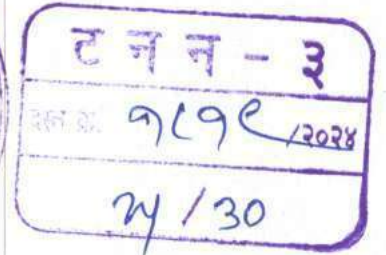 ट न न - ३
दस्त क्र. १८१९ /२०२४
२५ / ३०